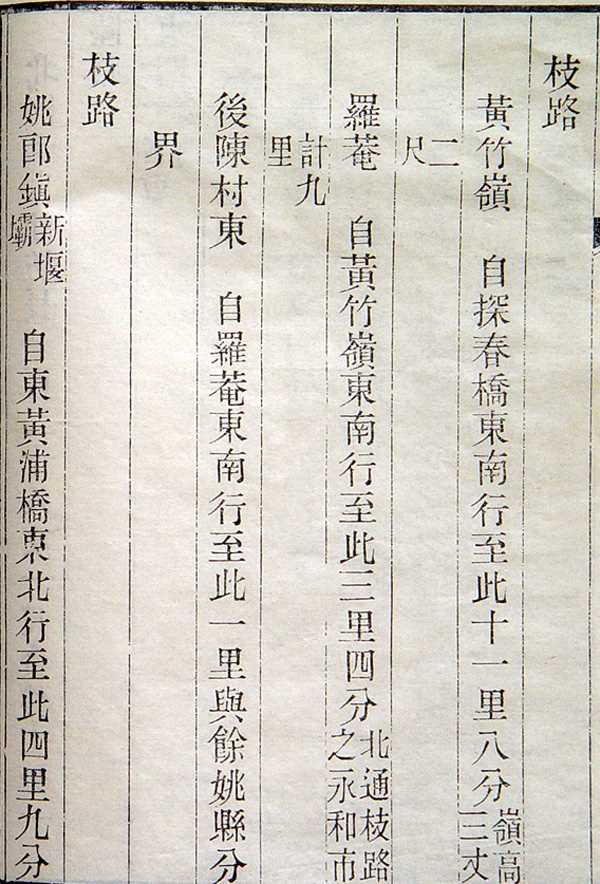 枝路
黃竹嶺　自探春橋東南行至此十一里八分嶺高三丈
二尺
羅菴　自黃竹嶺東南行至此三里四分北通枝路之永和市
計九里
後陳村東　自羅菴東南行至此一里與餘姚縣分
界
枝路
姚郎鎭新堰壩　自東黃浦橋東北行至此四里九分